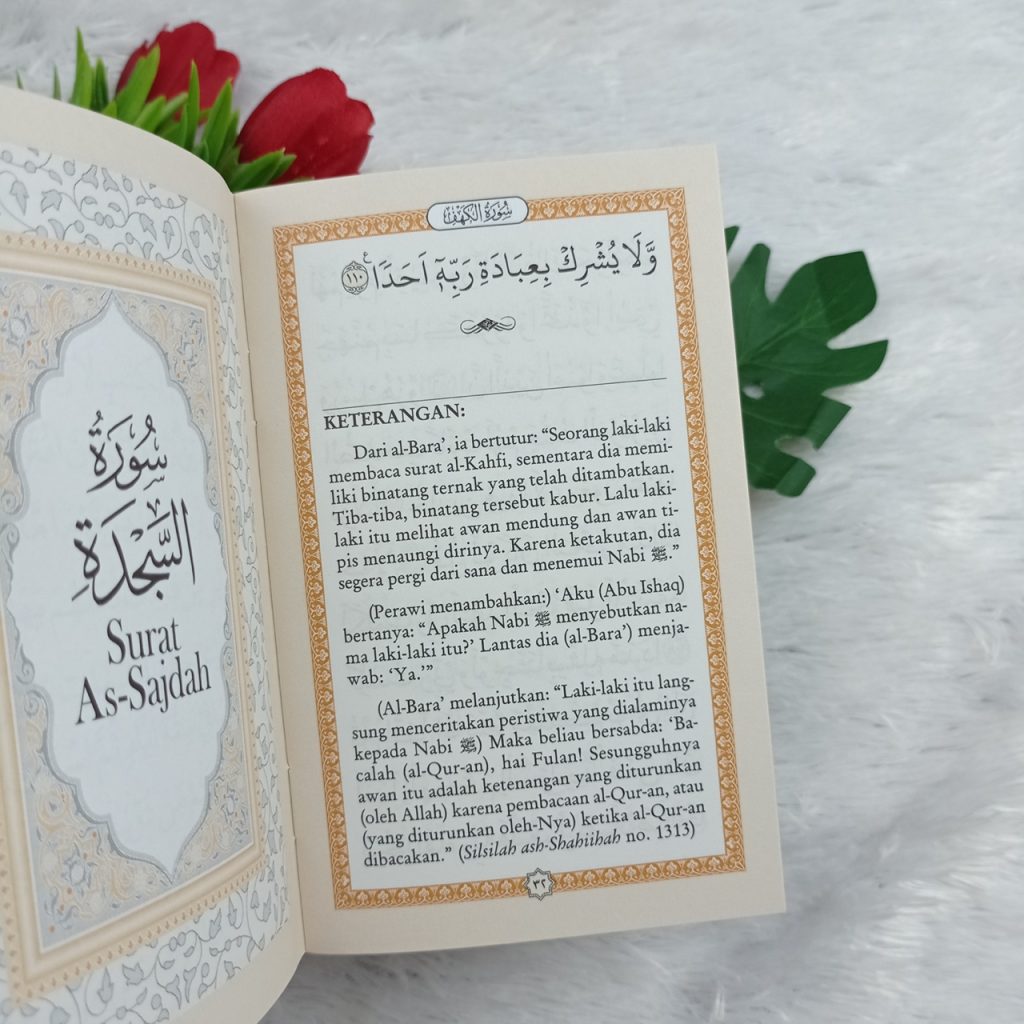 سُورَةُ
السَّجْدَةِ
Surat
As-Sajdah
سُورَةُ الكَهْفِ
وَّلَا يُشْرِكْ بِعِبَادَةِ رَبِّهٖٓ اَحَدًا ࣖ ١١٠
KETERANGAN:
Dari al-Bara’, ia bertutur: “Seorang laki-laki
membaca surat al-Kahfi, sementara dia memi-
liki binatang ternak yang telah ditambatkan.
Tiba-tiba, binatang tersebut kabur. Lalu laki-
laki itu melihat awan mendung dan awan ti-
pis menaungi dirinya. Karena ketakutan, dia
segera pergi dari sana dan menemui Nabi ﷺ.”
(Perawi menambahkan:) ‘Aku (Abu Ishaq)
bertanya: “Apakah Nabi ﷺ menyebutkan na-
ma laki-laki itu?’ Lantas dia (al-Bara’) menja-
wab: ‘Ya.’”
(Al-Bara’ melanjutkan: “Laki-laki itu lang-
sung menceritakan peristiwa yang dialaminya
kepada Nabi ﷺ) Maka beliau bersabda: ‘Ba-
calah (al-Qur-an), hai Fulan! Sesungguhnya
awan itu adalah ketenangan yang diturunkan
(oleh Allah) karena pembacaan al-Qur-an, atau
(yang diturunkan oleh-Nya) ketika al-Qur-an
dibacakan.” (Silsilah ash-Shahiihah no. 1313)
٣٢